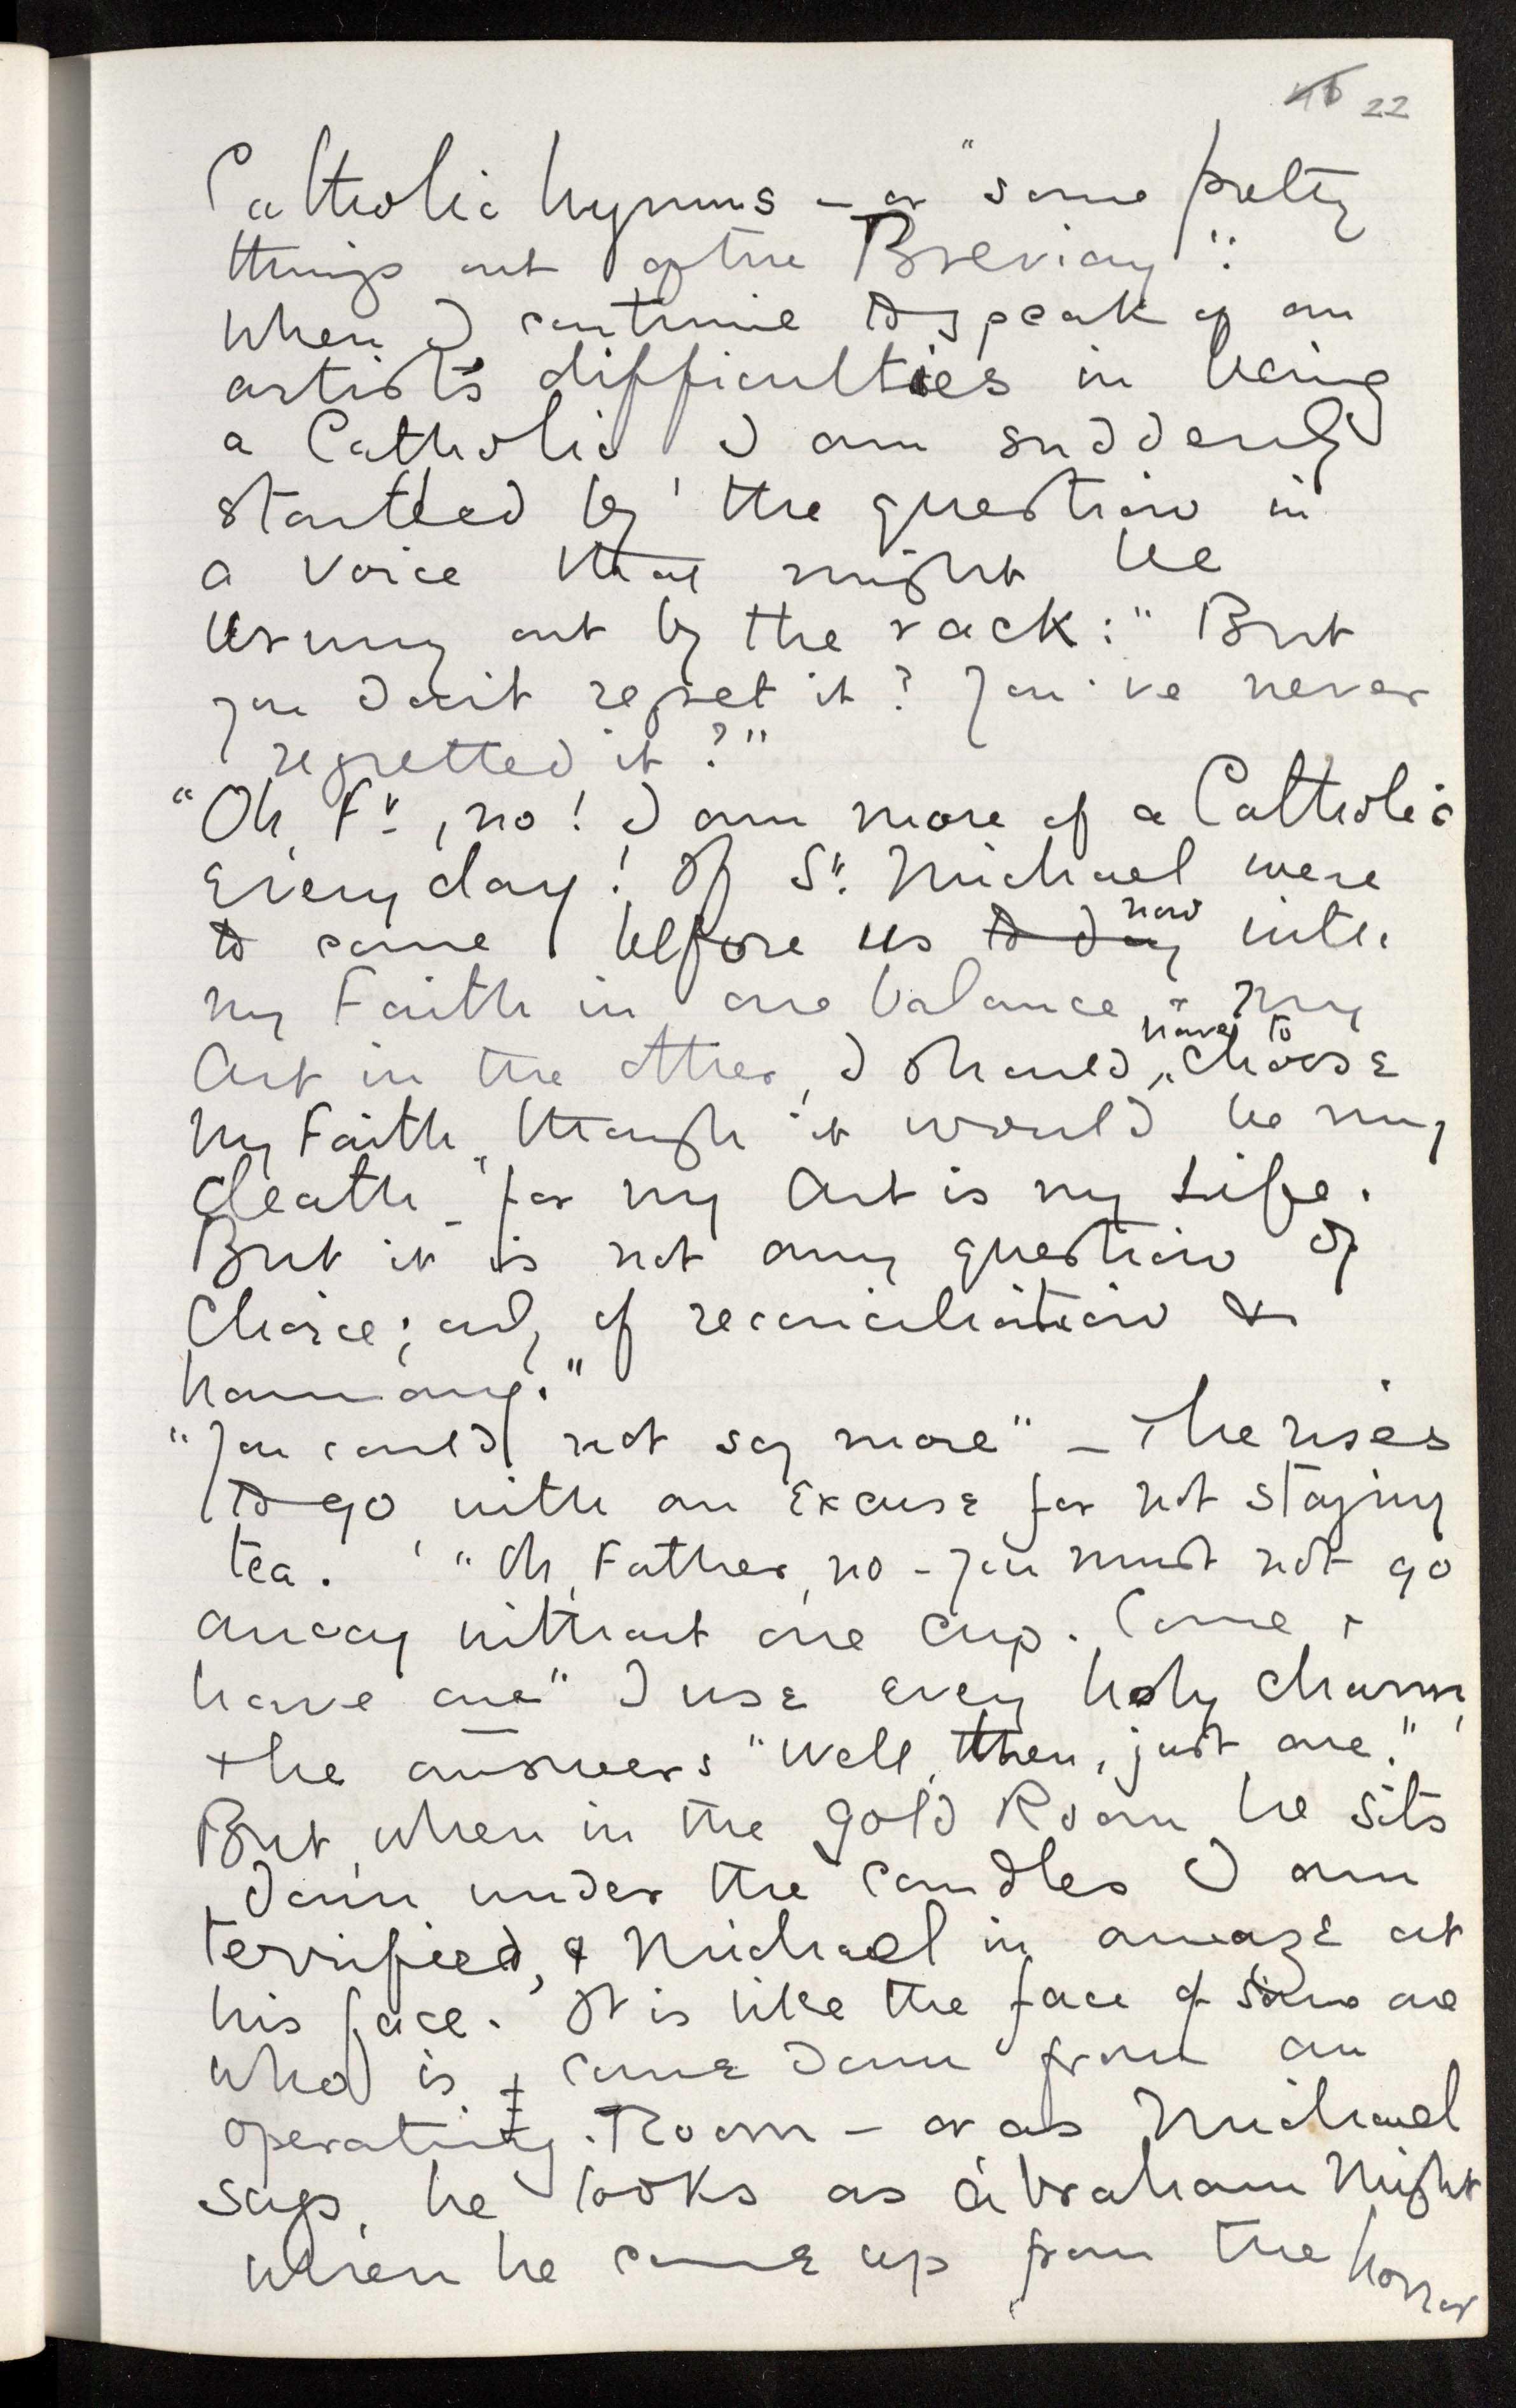 46 22
Catholic hymns - or "some pretty
things out of the Breviary".
When I continue to speak of an
artist's difficulties in being
a Catholic I am suddenly
startled by the question in
a voice that might be
wrung out by the rack: "But
you don't regret it? You've never
regretted it?"
"Oh, Fr., no! I am more of a Catholic
every day! If St. Michael were
to come before us to day now with
my Faith in one balance, & my
Art in the other, I should have to choose
my Faith, though it would be my
death - for my Art is my Life.
But it is not any question of
Choice; only of reconciliation &
harmony."
"You could not say more" - & he rises
to go with an excuse for not staying
tea. "Oh, Father, no - you must not go
away without one cup. Come &
have one" I use every holy charm,
& he answers "Well, then, just one."
But, when in the gold Room he sits
down under the candles I am
terrified, & Michael in amaze at
his face. It is like the face of some one
who is come down from an
operating-Room - or as Michael
says, he looks as Abraham might
when he came up from the horror